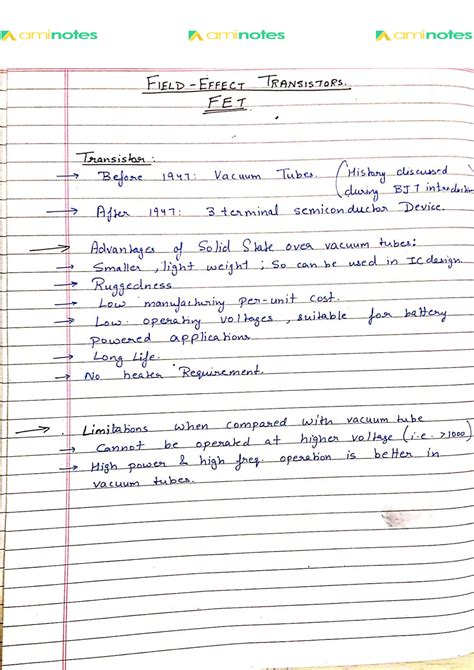 aminotes aminotes aminotes
FIELD-EFFECT TRANSISTORS.
FET
Transistor :
→ Before 1947: Vacuum Tubes. (History discussed
during BJT introduction
→ After 1947: 3 terminal semiconductor Device.
→ Advantages of Solid State over vacuum tubes:
→ Smaller, light weight ; So can be used in IC design.
→ Ruggedness
→ Low manufacturing per-unit cost.
→ Low operating voltages, suitable for battery
powered applications
→ Long Life.
→ No heater Requirement.
→ . Limitations when compared with vacuum tube
→ Cannot be operated at higher voltage (i.e. >1000)
→ High power & high freq. operation is better in
vacuum tubes.